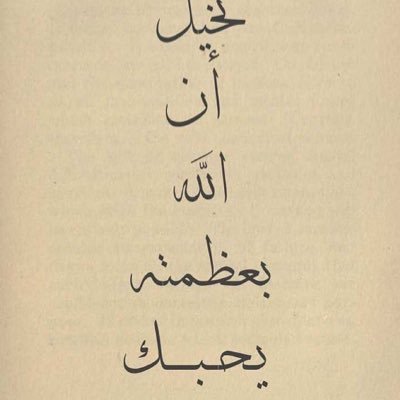 تخيل
أن
اللَّه
بعظمته
يحبـــك